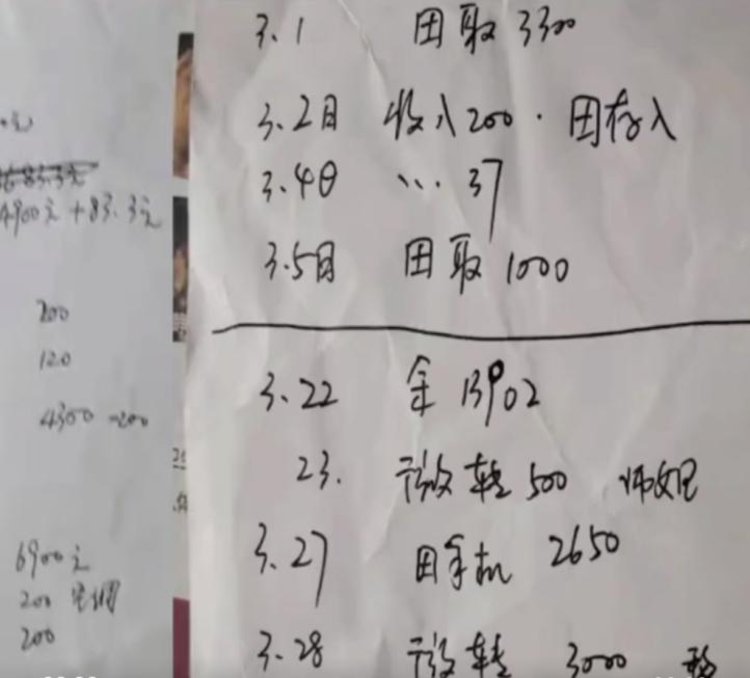 3.1 田取3300
3.2日 收入200.田存入
3.4日 、、… 37
3.5日 田取1000
3.22 余13902
23. 微转500
3.27 田手机 2650
3.28 微转 3000
4900元+83.3元
200
120
4300-200
6900元
200
200